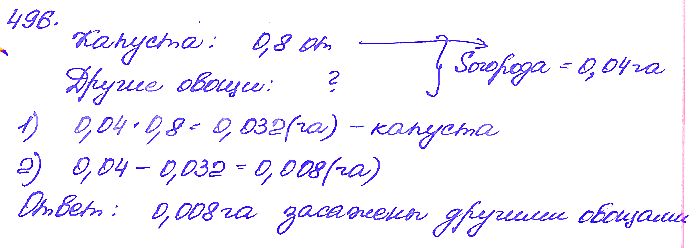 496.
Капуста: 0,8 от
Sогорода = 0,04 га
Другие овощи: ?
1) 0,04 · 0,8 = 0,032 (га) – капуста
2) 0,04 – 0,032 = 0,008 (га)
Ответ: 0,008 га засажены другими овощами